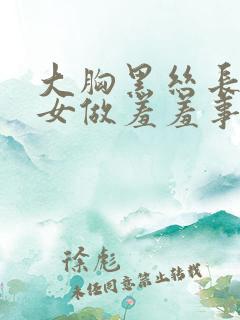 大胸黑丝長
女做羞羞事
徐彪
未经同意禁止转载